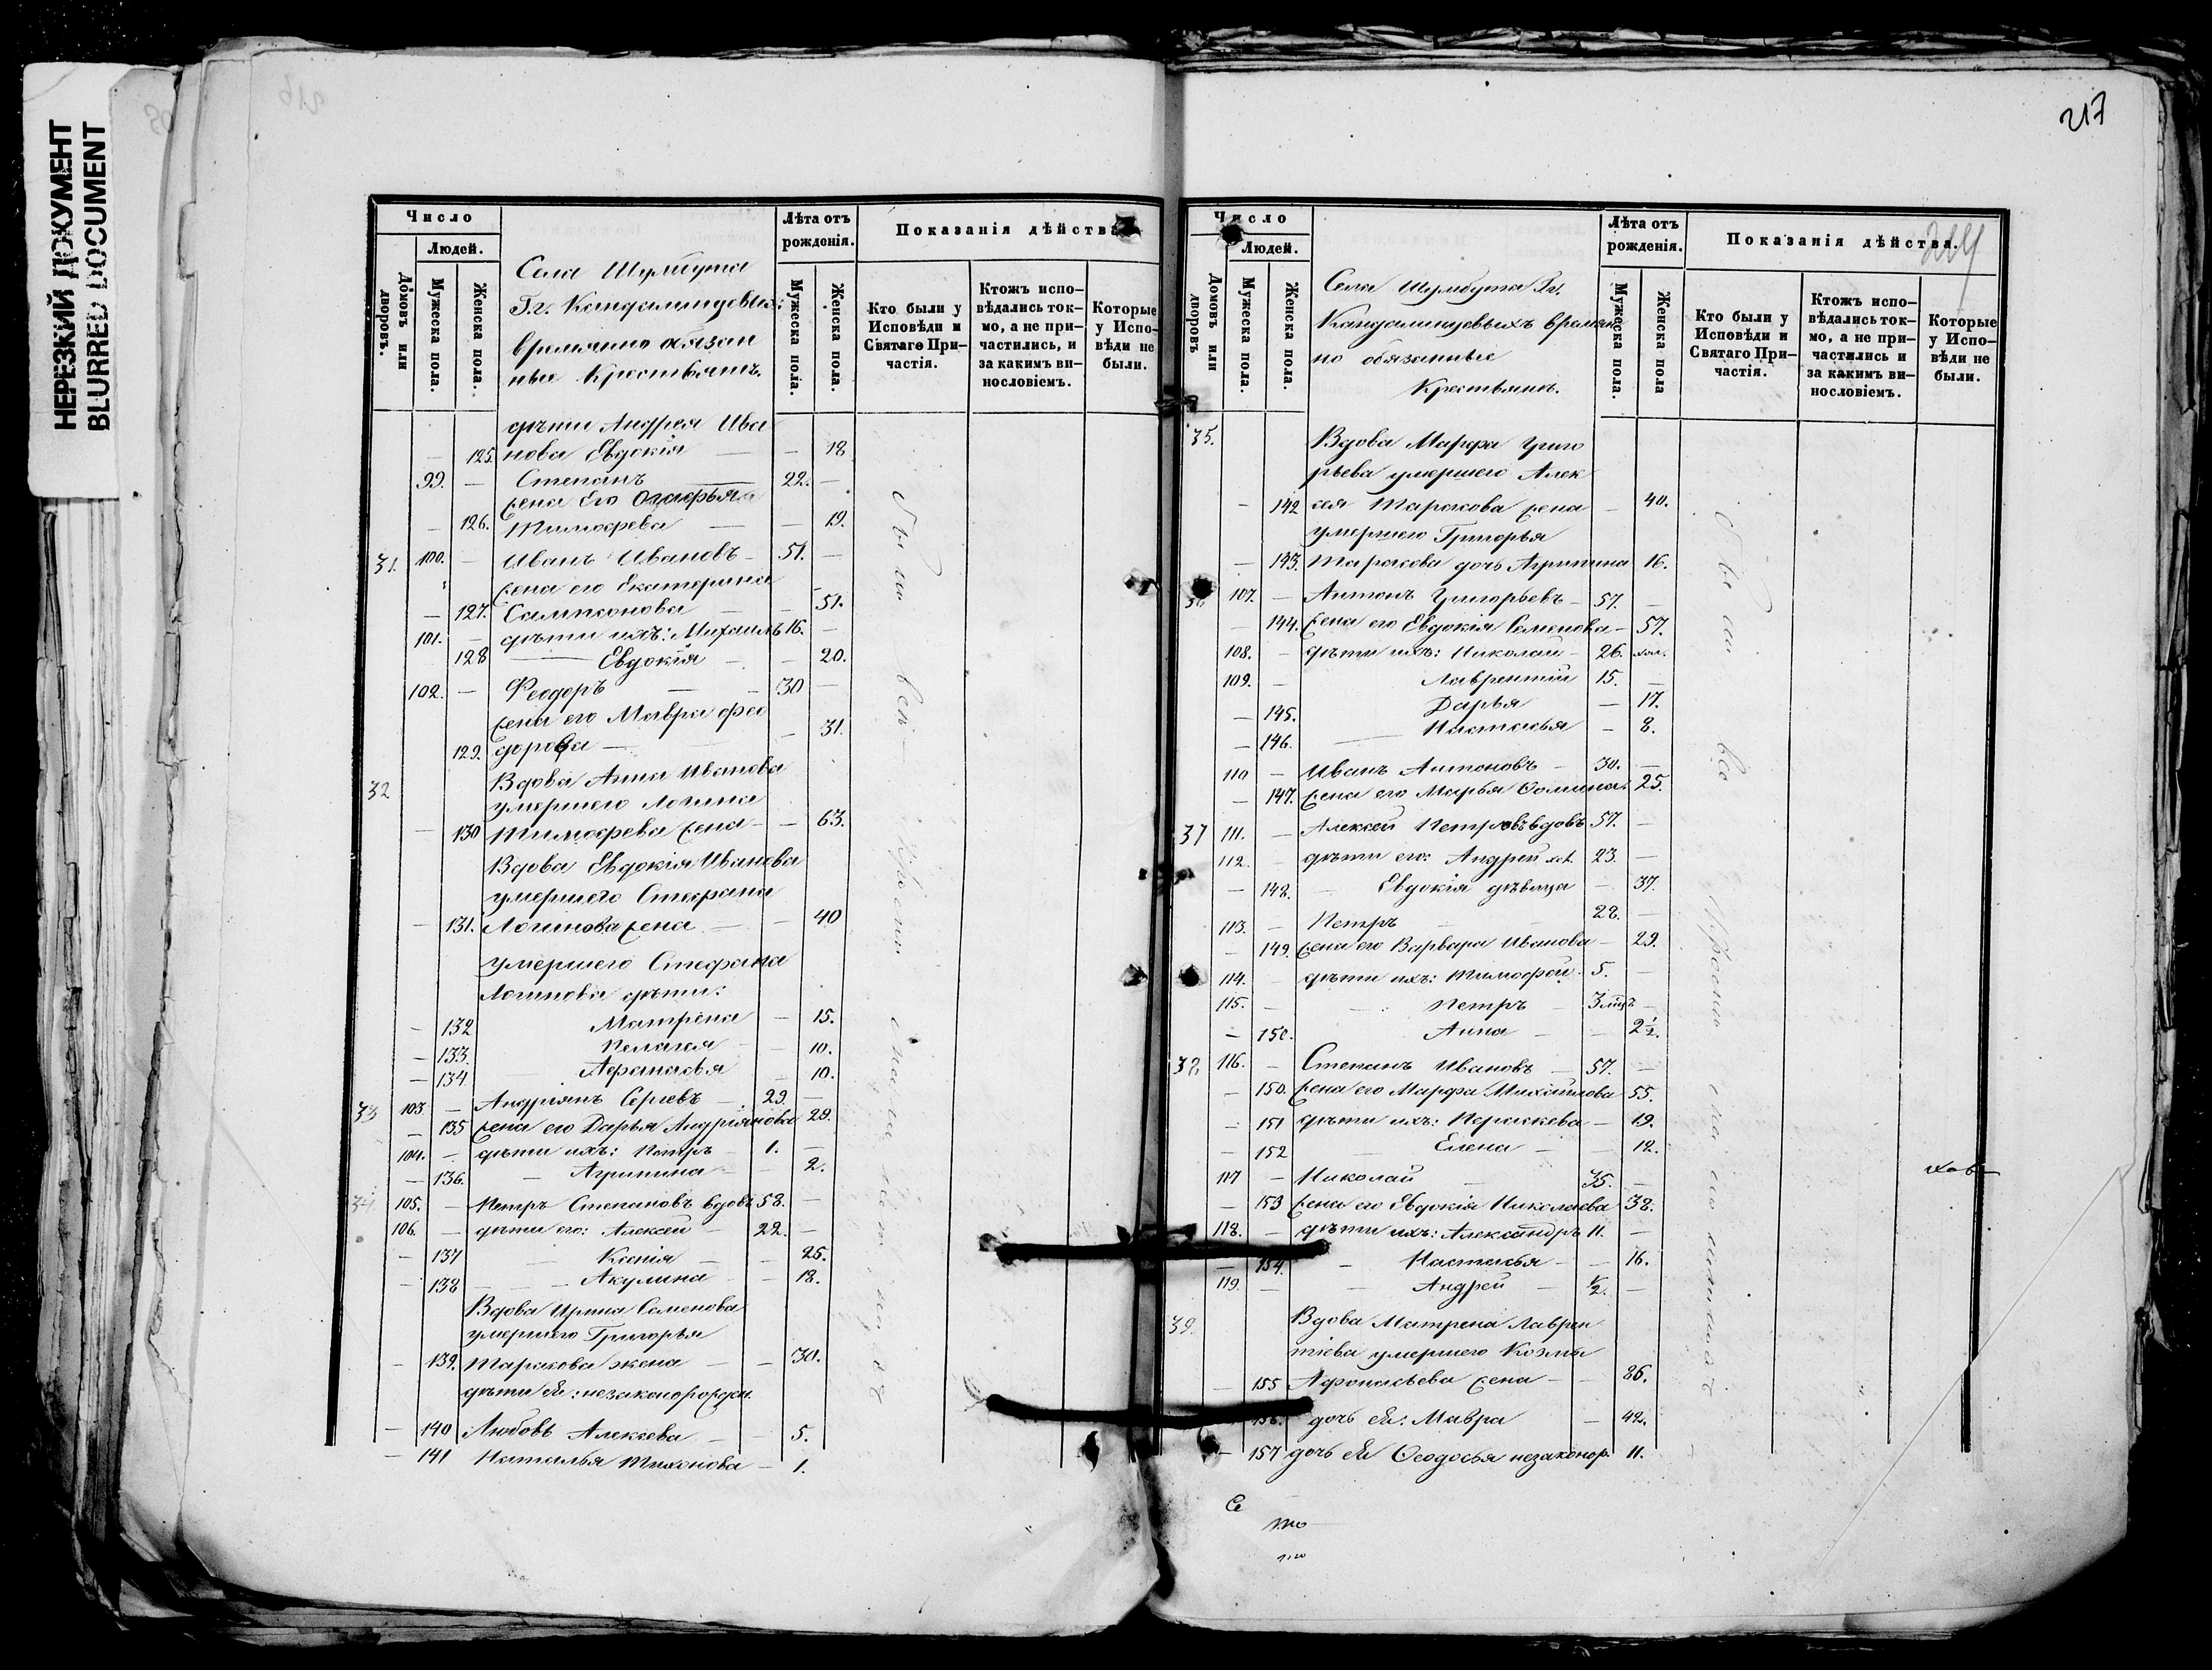 НЕРЕЗКИЙ ДОКУМЕНТ
BLURRED DOCUMENT
Число
Людей.
Домовъ или дворовъ.
Мужеска пола.
Женска пола.
Села Шумбута
Гг. Кандалинцовых:
временно обязан
ные Крестьянъ.
Лѣта отъ рожденія.
Мужеска пола.
Женска пола.
Показанія дѣйства
Кто были у Исповѣди и Святаго Причастія.
Ктожъ исповѣдались токмо, а не причастились, и за какимъ винословіемъ.
Которые у Исповѣди не были.
дѣти Андрея Ива
— 125. нова Евдокія — — 18
99. — Степанъ 22. —
жена Его Агафья
— 126. Тимофева — — 19.
31. 100. — Иванъ Ивановъ — 51. —
жена его Екатерина
— 127. Сампсонова — — 51.
101. — дѣти ихъ: Михаилъ 16. —
128 — Евдокія — — 20.
102. — Феодоръ — — 30 —
жена его Мавра Фео
129. дорова — — 31.
32 Вдова Анна Иванова
умершего Логина
— 130 Тимофева жена — — 63.
Вдова Евдокія Иванова
умершего Стефана
— 131. Логинова жена — — 40
умершего Стефана
Логинова дѣти:
— 132 Матрена — 15.
— 133. Пелагея — 10.
— 134 Афанасья — 10.
33 103. — Андріянъ Сергевъ — 29. —
— 135 жена его Дарья Андріянова 29.
104. — дѣти ихъ: Петръ — 1. —
— 136. — Агрипина — — 2.
34 105. — Петръ Степановъ вдовъ 58. —
106. — дѣти его: Алексей — 22. —
— 137 — Ксенія — — 25.
— 138 — Акулина — — 18.
Вдова Ирина Семенова
умершего Григорья
— 139. Тарасова жена — — 30.
дѣти ея: незаконорожден.
— 140 Любовь Алексева — — 5.
— 141 Наталья Тихонова — 1.
Были все
217
214
Число
Людей.
Домовъ или дворовъ
Мужеска пола.
Женска пола.
Села Шумбута Гг.
Кандалинцевыхъ времен
но обязанные
Крестьянъ.
Лѣта отъ рожденія.
Мужеска пола
Женска пола
Показанія дѣйства.
Кто были у Исповѣди и Святаго Причастія.
Ктожъ исповѣдались токмо, а не причастились и за какимъ винословіемъ.
Которые у Исповѣди не были.
35. Вдова Марфа Григо
рьева умершего Алек
— 142 сея Тарасова жена — 40.
умершего Григорья
— 143. Тарасова дочь Агрипина 16.
36 107. — Антонъ Григорьевъ — 57. —
— 144. жена его Евдокія Семенова — 57.
108. — дѣти ихъ: Николай — 26. хол.
109. — Лаврентій 15. —
— 145. Дарья — 17.
— 146. — Настасья — 8.
110 — Иванъ Антоновъ — 30. —
— 147. жена его Марья Фомина 25.
37 111. — Алексей Петровъ вдовъ 57. —
112. — дѣти его: Андрей хол. 23. —
— 148. — Евдокія дѣвица — 37.
113. — Петръ 28. —
— 149. жена его Варвара Иванова — 29.
114. — дѣти ихъ: Тимофей. 5. —
115. — Петръ — 3 мцъ —
— 150. Анна — — 2½.
38 116. — Степанъ Ивановъ — 57. —
— 150. жена его Марфа Михайлова 55.
— 151 дѣти ихъ: Параскева — 19.
— 152 Елена — — 12.
117 — Николай — 35. —
— 153 жена его Евдокія Николаева 38.
118. — дѣти ихъ: Александръ 11. —
— 154. — Настасья — — 16.
119. — — Андрей — ½. —
39. Вдова Матрена Лаврен
тіева умершего Козмы
— 155 Афонасьева жена — — 86.
156. дочь ея: Мавра — 42.
— 157 дочь ея Феодосья незаконор. 11.
Были все
Се
то